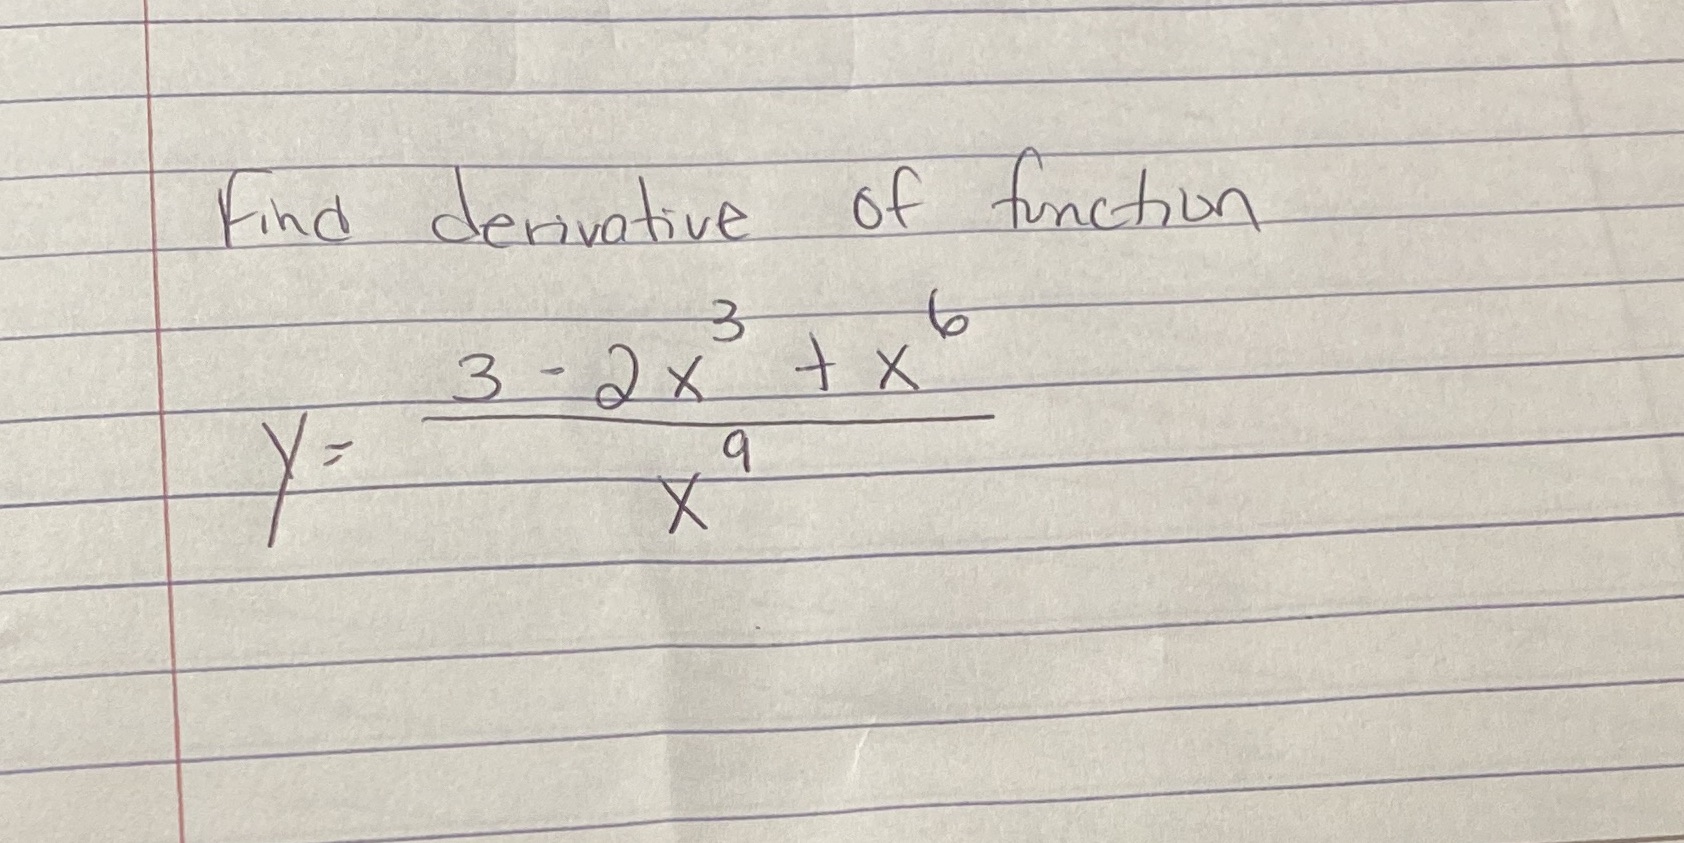 Find derivative of function
y = (3 - 2x^3 + x^6) / x^9